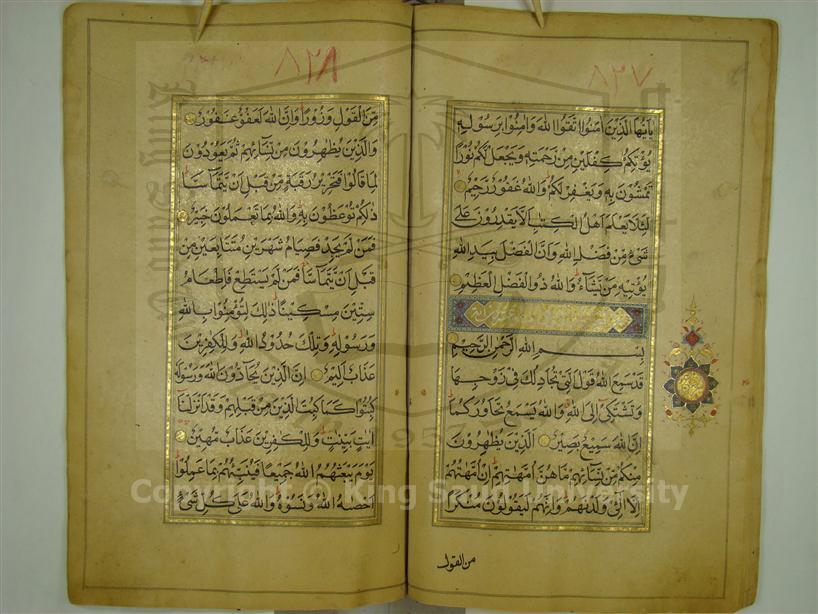 ٨٢٧
يا أيها الذين آمنوا اتقوا الله وآمنوا برسوله
يؤتكم كفلين من رحمته ويجعل لكم نورا
تمشون به ويغفر لكم والله غفور رحيم
لئلا يعلم أهل الكتاب ألا يقدرون على
شيء من فضل الله وأن الفضل بيد الله
يؤتيه من يشاء والله ذو الفضل العظيم
بسم الله الرحمن الرحيم
قد سمع الله قول التي تجادلك في زوجها
وتشتكي إلى الله والله يسمع تحاوركما
إن الله سميع بصير الذين يظهرون
منكم من نسائهم ما هن أمهتهم إن أمهتهم
إلا الئي ولدنهم وإنهم ليقولون منكرا
من القول
٨٢٨
من القول وزورا وإن الله لعفو غفور
والذين يظهرون من نسائهم ثم يعودون
لما قالوا فتحرير رقبة من قبل أن يتماسا
ذلكم توعظون به والله بما تعملون خبير
فمن لم يجد فصيام شهرين متتابعين من
قبل أن يتماسا فمن لم يستطع فإطعام
ستين مسكينا ذلك لتؤمنوا بالله
ورسوله وتلك حدود الله وللكفرين
عذاب أليم إن الذين يحادون الله ورسوله
كبتوا كما كبت الذين من قبلهم وقد أنزلنا
ايت بينت وللكفرين عذاب مهين
يوم يبعثهم الله جميعا فينبئهم بما عملوا
أحصه الله ونسوه والله على كل شيء
Copyright © King Saud University